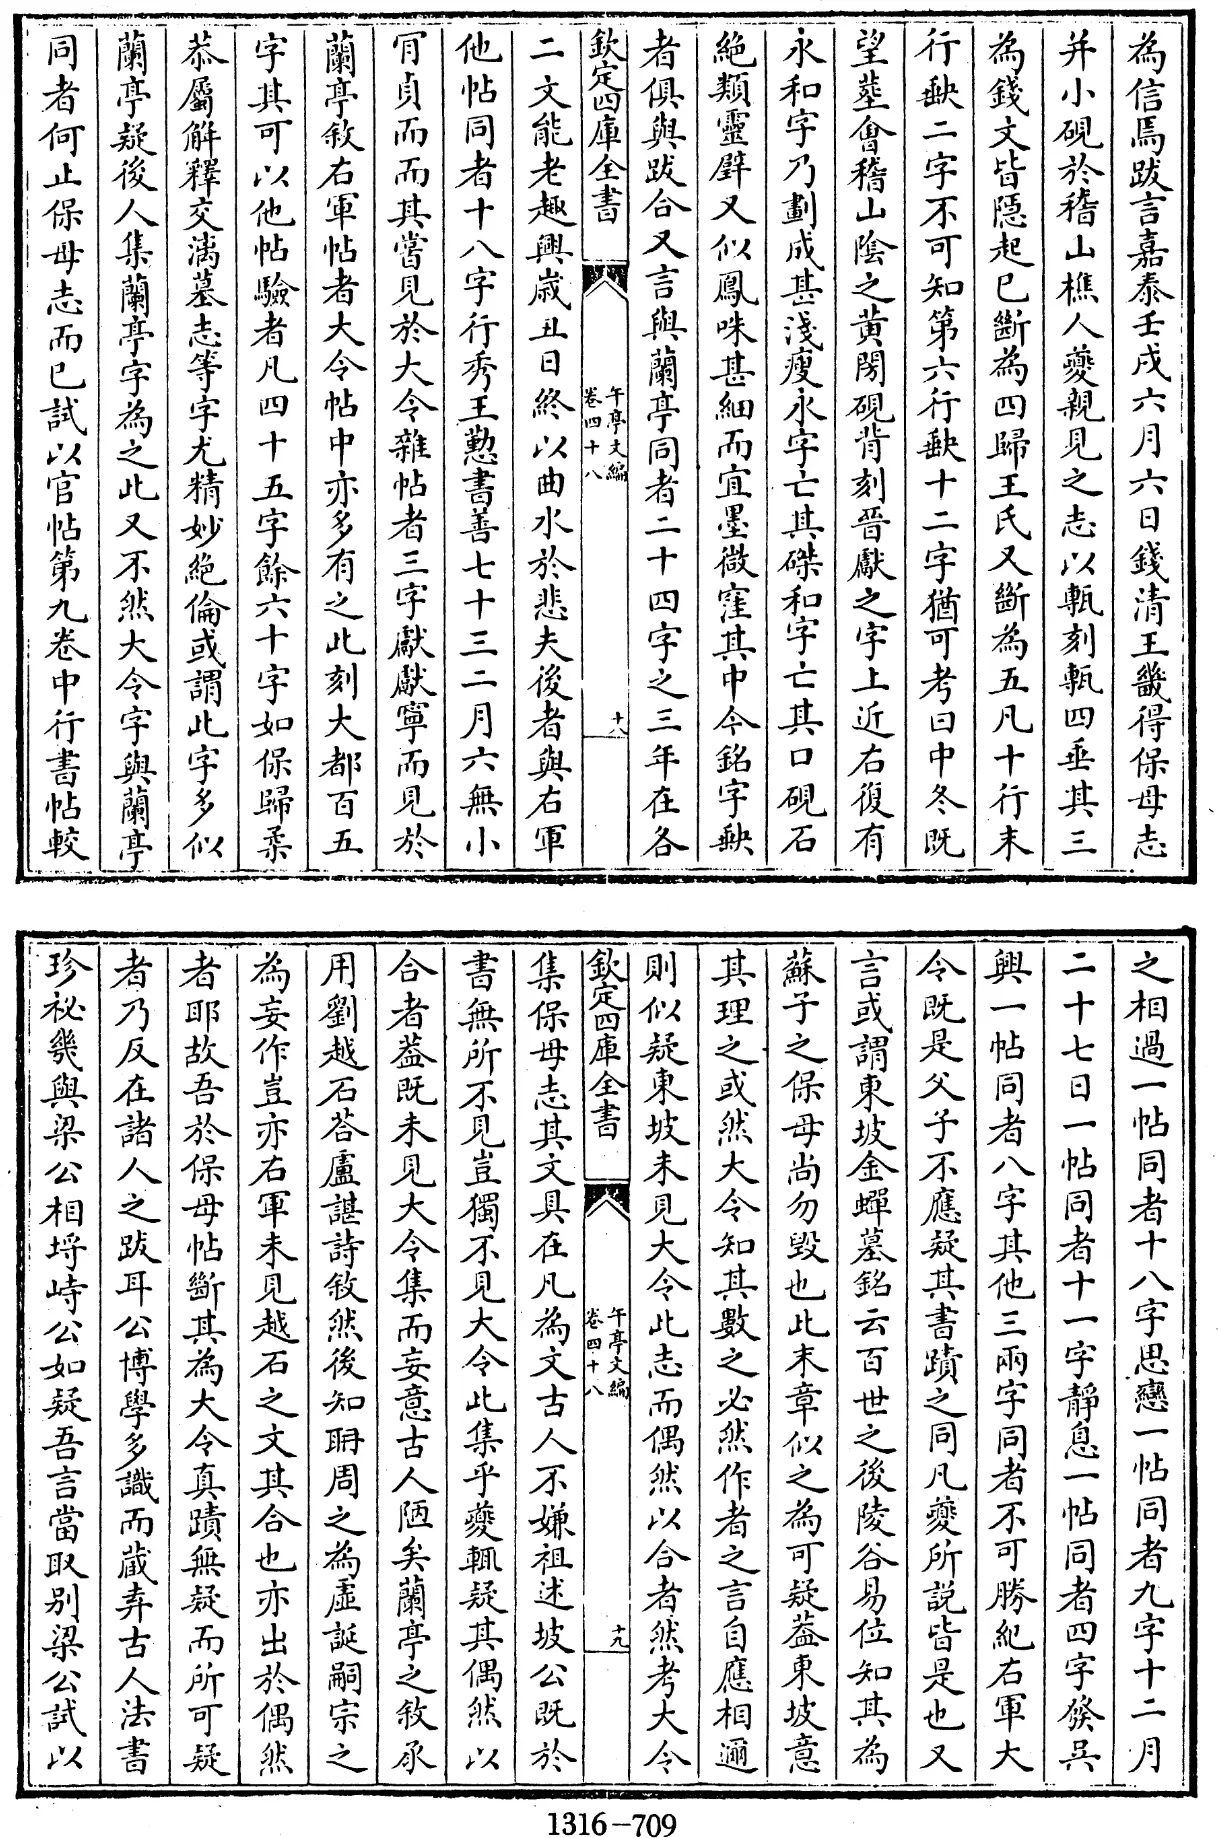 為信焉跋言嘉泰壬戌六月六日錢清王畿得保母志
并小硯於稽山樵人夔親見之志以甎刻甎四垂其三
為錢文皆隱起已斷為四歸王氏又斷為五凡十行末
行缺二字不可知第六行缺十二字猶可考曰中冬既
望塟會稽山陰之黃閍硯背刻晉獻之字上近右復有
永和字乃劃成甚淺瘦永字亡其磔和字亡其口硯石
絕類靈壁又似鳳咮甚細而宜墨微窪其中今銘字缺
者俱與跋合又言與蘭亭同者二十四字之三年在各
欽定四庫全書
午亭文編
卷四十八
十八
二文能老趣興歲丑日終以曲水於悲夫後者與右軍
他帖同者十八字行秀王懃書善七十三二月六無小
肎貞而而其嘗見於大令雜帖者三字獻獻寧而見於
蘭亭敘右軍帖者大令帖中亦多有之此刻大都百五
字其可以他帖驗者凡四十五字餘六十字如保歸柔
恭屬解釋交漓墓志等字尤精妙絕倫或謂此字多似
蘭亭疑後人集蘭亭字為之此又不然大令字與蘭亭
同者何止保母志而已試以官帖第九卷中行書帖較
之相過一帖同者十八字思戀一帖同者九字十二月
二十七日一帖同者十一字靜息一帖同者四字發吳
興一帖同者八字其他三兩字同者不可勝紀右軍大
令既是父子不應疑其書蹟之同凡夔所說皆是也又
言或謂東坡金蟬墓銘云百世之後陵谷易位知其為
蘇子之保母尚勿毀也此末章似之為可疑葢東坡意
其理之或然大令知其數之必然作者之言自應相邇
則似疑東坡未見大令此志而偶然以合者然考大令
欽定四庫全書
午亭文編
卷四十八
十九
集保母志其文具在凡為文古人不嫌祖述坡公既於
書無所不見豈獨不見大令此集乎夔輒疑其偶然以
合者葢既未見大令集而妄意古人陋矣蘭亭之敘承
用劉越石荅盧諶詩敘然後知耼周之為虛誕嗣宗之
為妄作豈亦右軍未見越石之文其合也亦出於偶然
者耶故吾於保母帖斷其為大令真蹟無疑而所可疑
者乃反在諸人之跋耳公博學多識而蔵弆古人法書
珍祕幾與梁公相埒峙公如疑吾言當取別梁公試以
1316－709